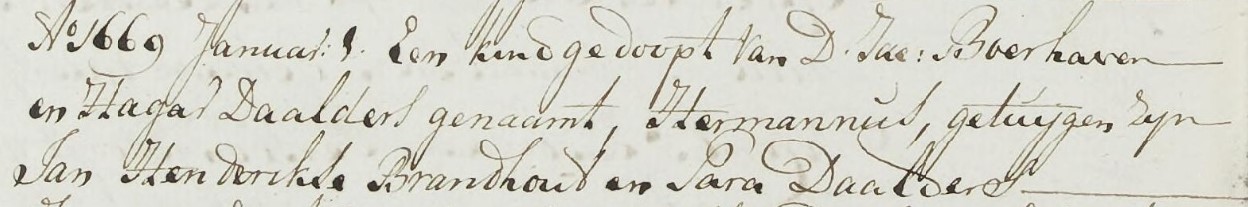 No 1669 Januar: 1. Een kind gedoopt van D. Jac: Boerhaven
en Hagar Daalders genaamt, Hermannus, getuijgen zyn
Jan Henderikse Brandhout en Sara Daalders